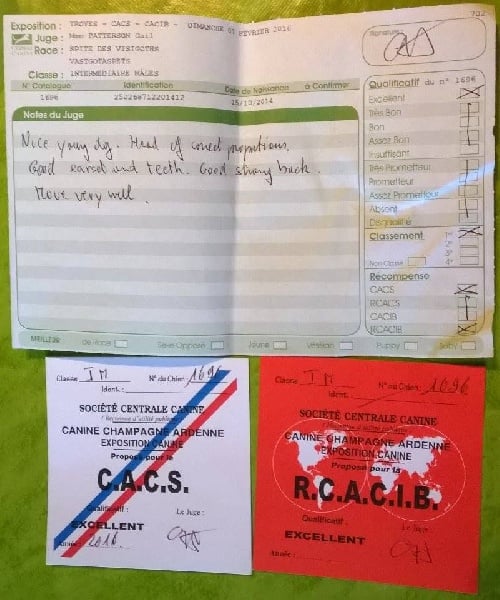 Exposition : TROYES - CACS - CACIB - DIMANCHE 07 FEVRIER 2016
Juge : Mme PATTERSON Gail
Race : SPITZ DES VISIGOTHS
VASTGOTASPETS
Classe : INTERMEDIAIRE MÂLES
N° Catalogue Identification Date de Naissance à Confirmer
1696 250268712201412 15/10/2014
Notes du Juge
Nice young dog. Head of correct proportions.
Good earset and teeth. Good strong back.
Move very well.
702
Signature
Qualificatif du n° 1696
Excellent
Très Bon
Bon
Assez Bon
Insuffisant
Très Prometteur
Prometteur
Assez Prometteur
Absent
Disqualifié
Classement
Non Classé
Récompense
CACS
RCACS
CACIB
RCACIB
MEILLEUR de Race Sexe Opposé Jeune Vétéran Puppy Baby
Classe : IM N° du Chien : 1696
Ident. :
SOCIÉTÉ CENTRALE CANINE
CANINE CHAMPAGNE ARDENNE
EXPOSITION CANINE
Proposé pour le
C.A.C.S.
Qualificatif : Le Juge :
EXCELLENT
Année : 2016.
Classe : IM N° du Chien : 1696
Ident. :
SOCIÉTÉ CENTRALE CANINE
CANINE CHAMPAGNE ARDENNE
EXPOSITION CANINE
Proposé pour la
R.C.A.C.I.B.
Qualificatif : Le Juge :
EXCELLENT
Année :